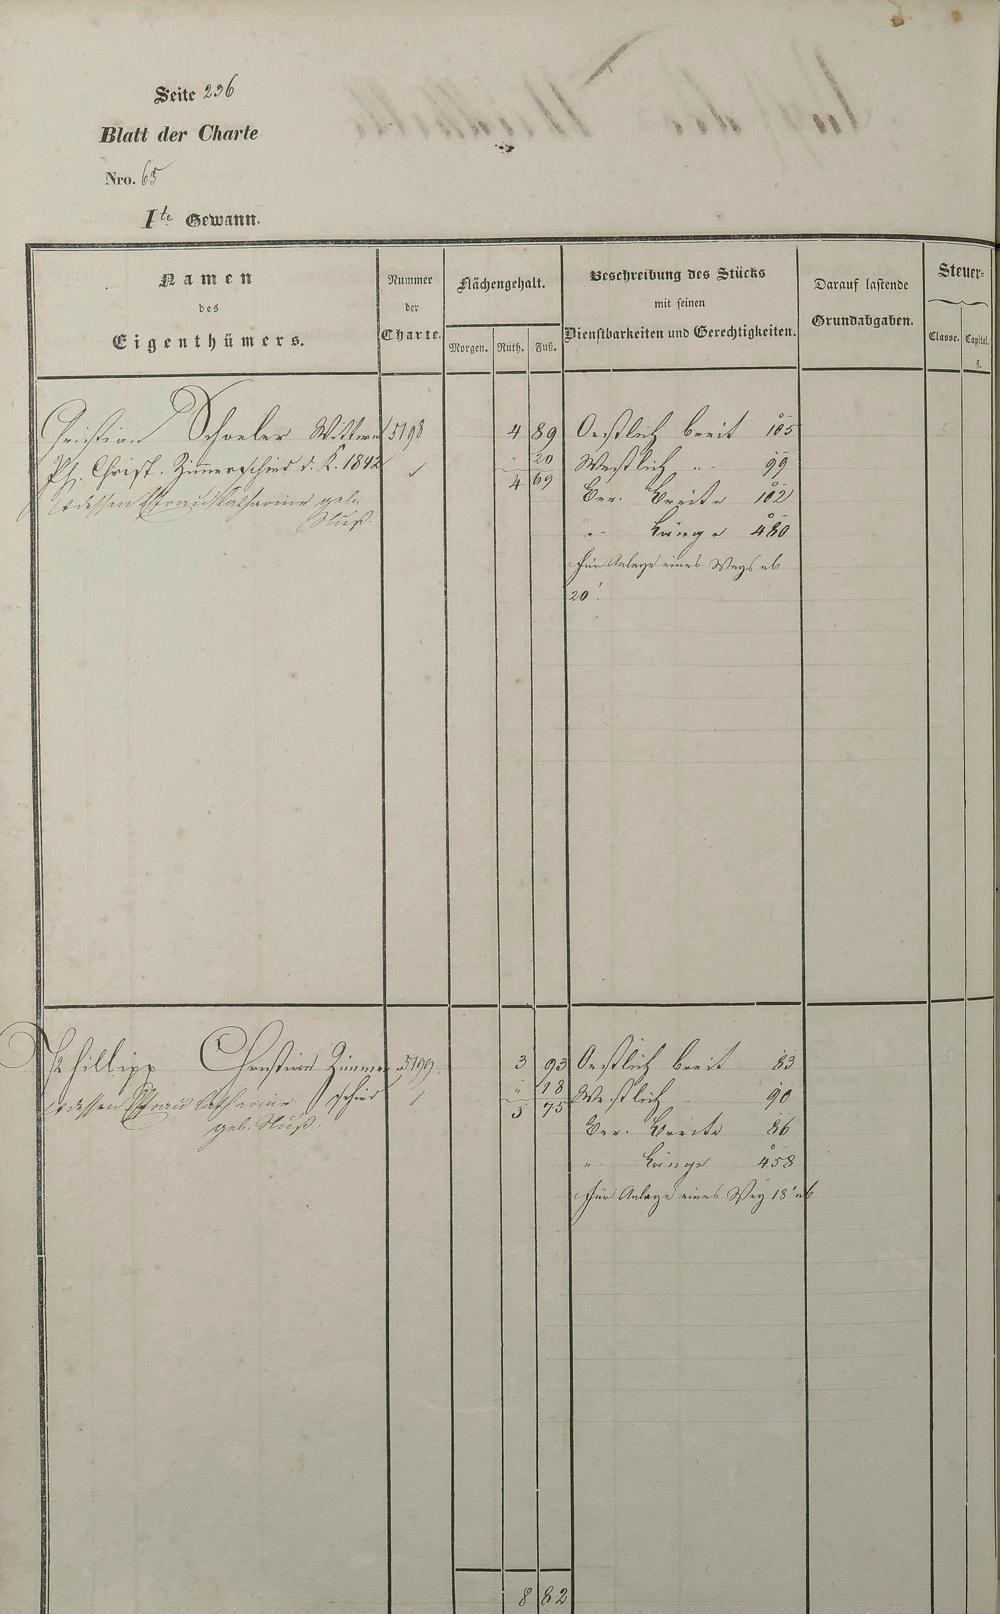 Seite 236
Blatt der Charte
Nro. 65
Ite Gewann.
Namen
des
Eigenthümers.
Nummer
der
Charte.
Flächengehalt.
Morgen. Ruth. Fuß.
Beschreibung des Stücks
mit seinen
Dienstbarkeiten und Gerechtigkeiten.
Darauf lastende
Grundabgaben.
Steuer-
Classe. Capital.
f.
Christian Schoeler Wittwe 5198 4 89 Oestlich breit 105
Ph. Christ. Zimmerschied d. K. 1842 20 Westlich " 99
4 69
et dessen Frau Catharine geb. Ver. Breite 102
" Länge 480
für Anlage eines Wegs ab
20'.
Phillipp Christian Zimmer 5199. 3 93 Oestlich breit 83
schied " 18 Westlich 90
et dessen Frau Catharine 3 75
geb. Ver. Breite 86
" Länge 458
für Anlage eines Weg 18' ab
8 82